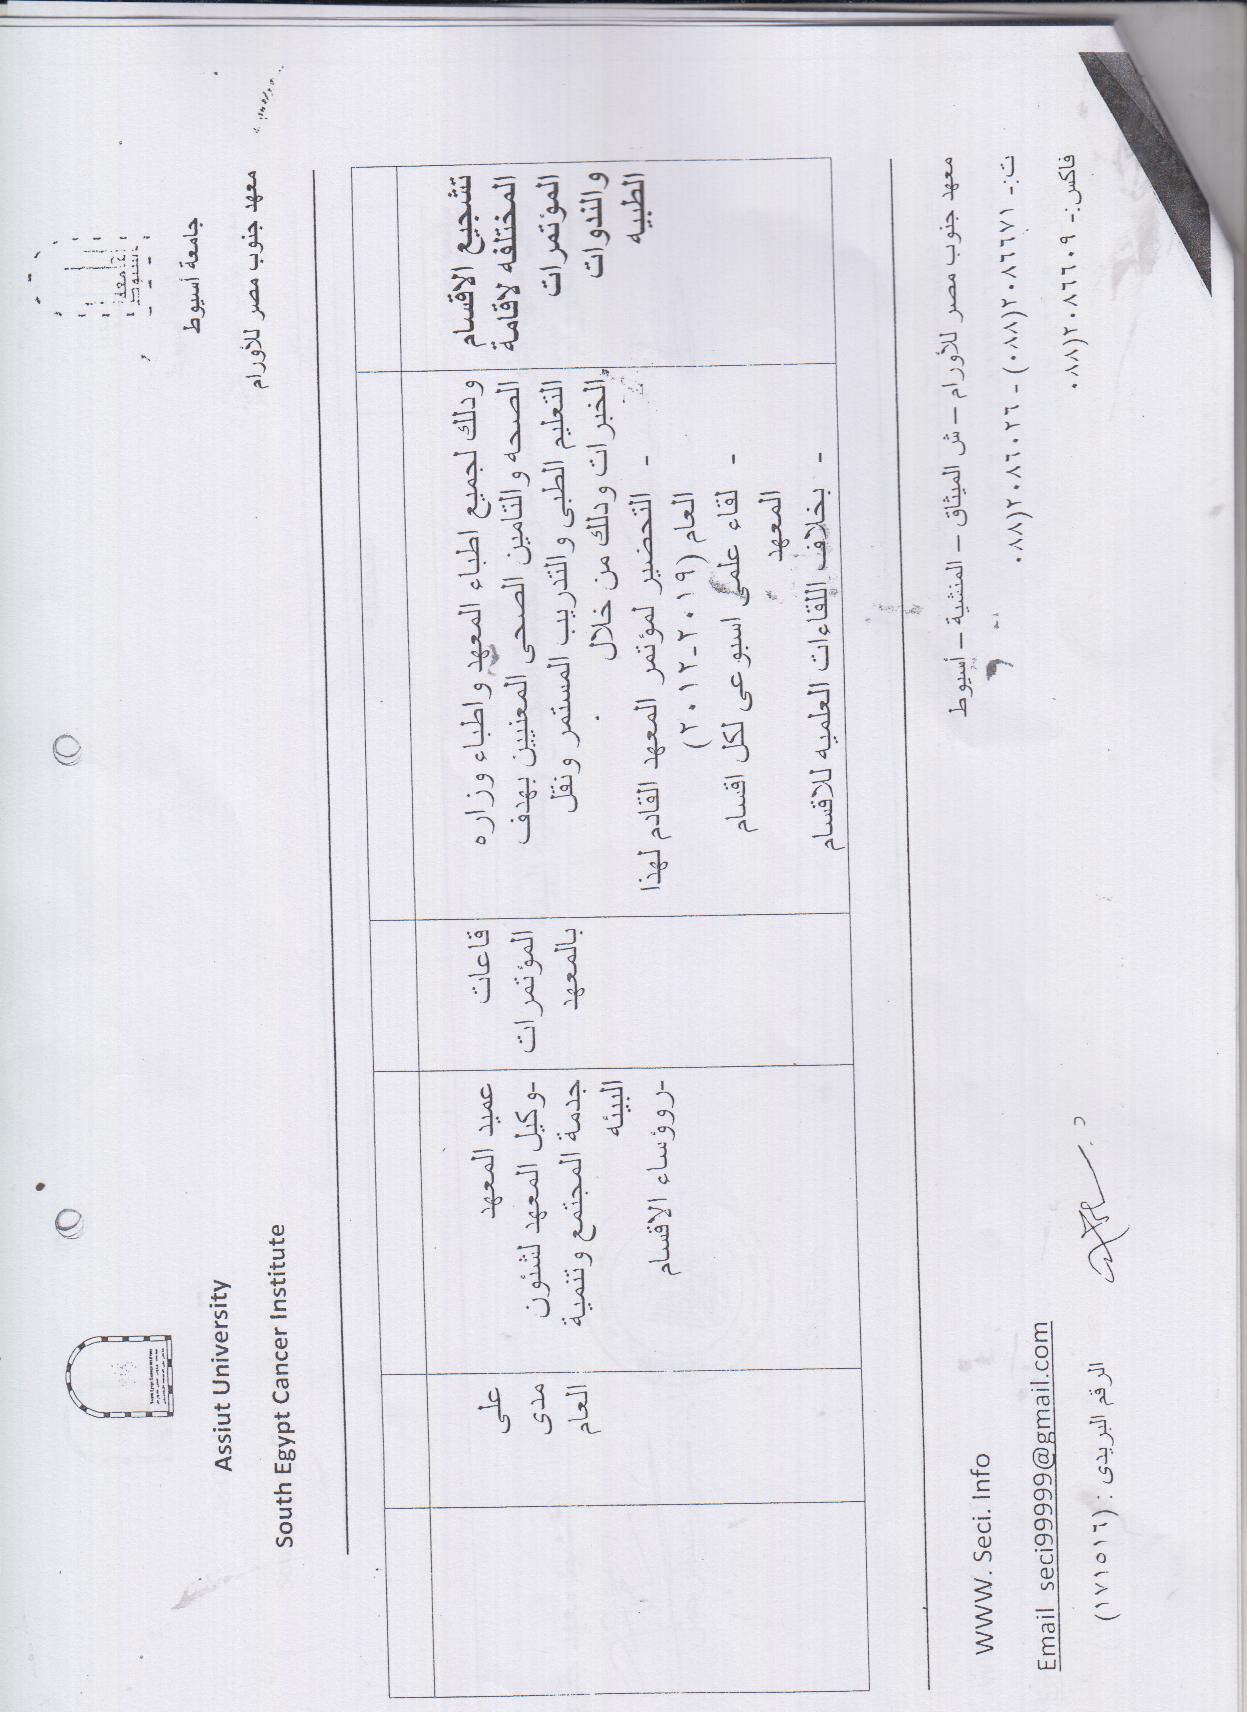 جامعة أسيوط
معهد جنوب مصر للأورام
Assiut University
South Egypt Cancer Institute
تشجيع الاقسام
المختلفه لاقامة
المؤتمرات
والندوات
الطبيه
وذلك لجميع اطباء المعهد واطباء وزاره
الصحه والتامين الصحى المعنيين بهدف
التعليم الطبى والتدريب المستمر ونقل
الخبرات وذلك من خلال
- التحضير لمؤتمر المعهد القادم لهذا
العام (٢٠١٩-٢٠١٢)
- لقاء علمى اسبوعى لكل اقسام
المعهد
- بخلاف اللقاءات العلميه للاقسام
قاعات
المؤتمرات
بالمعهد
عميد المعهد
-وكيل المعهد لشئون
جدمة المجتمع وتنمية
البيئه
-روؤساء الاقسام
على
مدى
العام
معهد جنوب مصر للأورام – ش الميثاق – المنشية – أسيوط
ت:- ٢٠٨٦٦٧١(٠٨٨) - ٢٠٨٦٠٢٦(٠٨٨
فاكس:- ٢٠٨٦٦٠٩(٠٨٨
WWW. Seci. Info
Email seci99999@gmail.com
الرقم البريدى : (١٧١٥١٦)